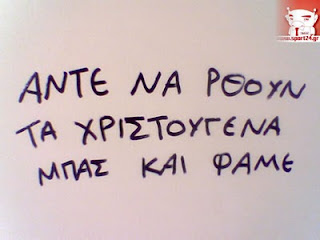 www.sport24.gr
ΑΝΤΕ ΝΑ ΡΘΟΥΝ
ΤΑ ΧΡΙΣΤΟΥΓΕΝΑ
ΜΠΑΣ ΚΑΙ ΦΑΜΕ